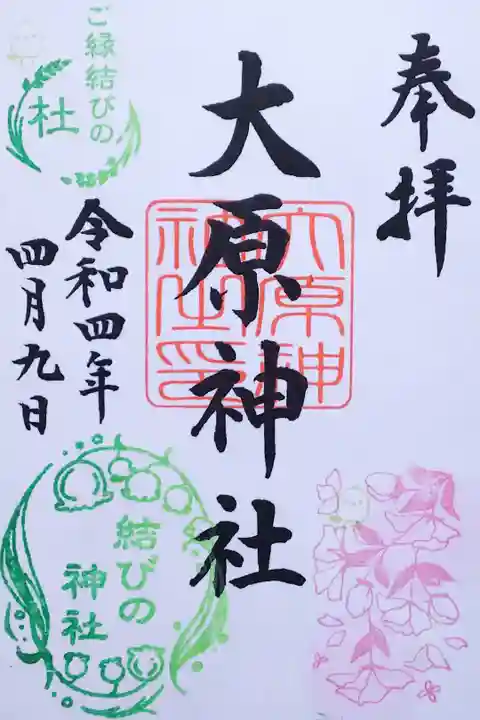 奉拝
大原神社
大原神
社印
令和四年
四月九日
ご縁結びの
杜
結びの
神社